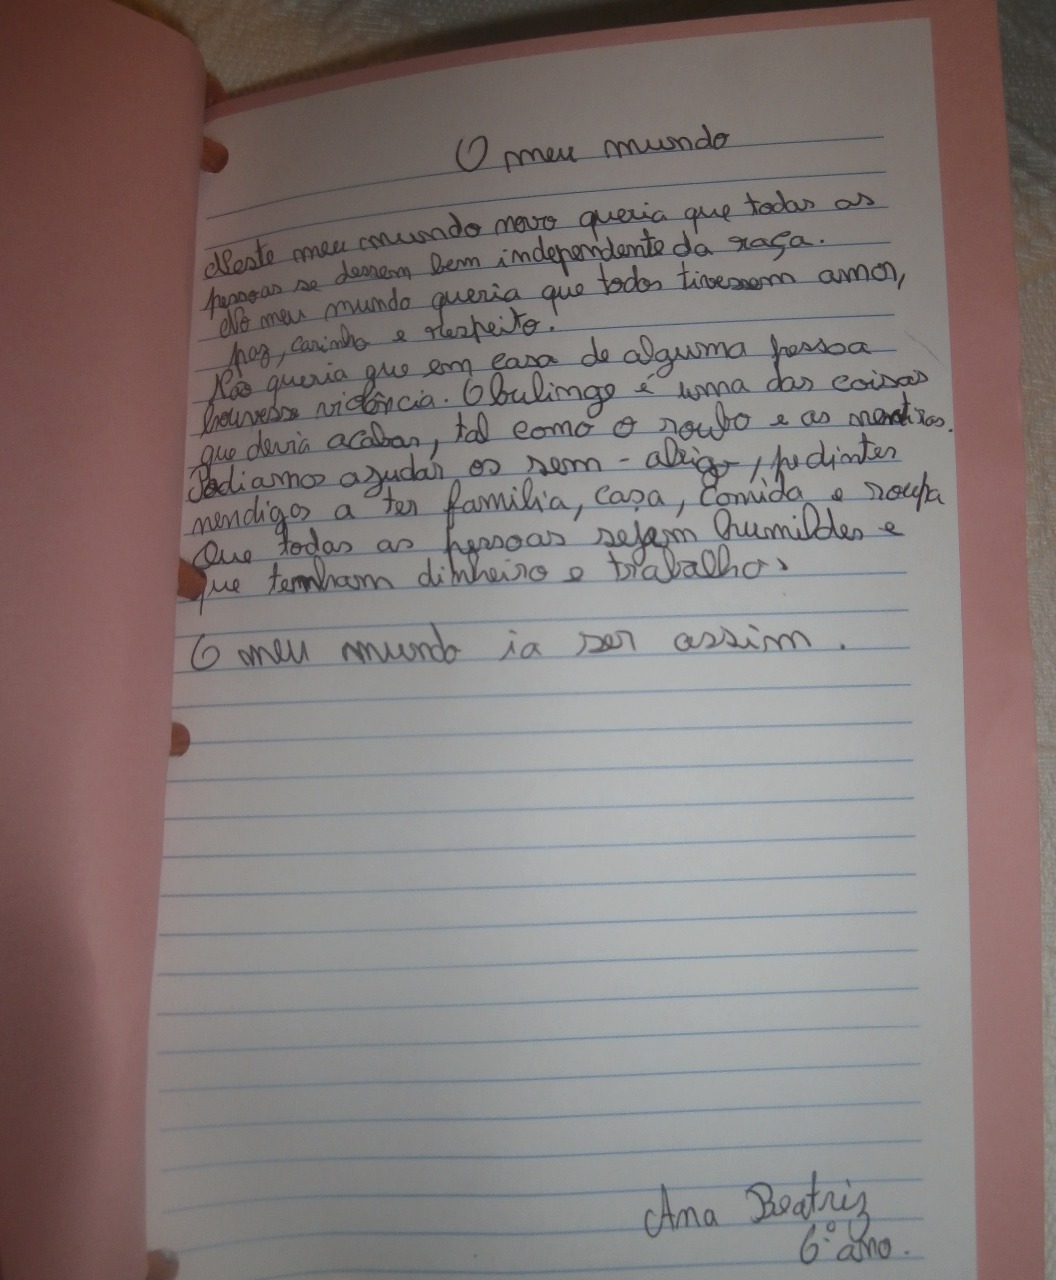 O meu mundo
Neste meu mundo novo queria que todas as
pessoas se dessem bem independente da raça.
No meu mundo queria que todos tivessem amor,
paz, carinho e respeito!
Não queria que em casa de alguma pessoa
houvesse violência. O bulingo é uma das coisas
que devia acabar, tal como o roubo e as mentiras.
Podiamos ajudar os sem-abrigo, pedintes
mendigos a ter familia, casa, comida e roupa
Que todas as pessoas sejam humildes e
que tenham dinheiro e trabalho.
O meu mundo ia ser assim.
Ana Beatriz
6º ano.